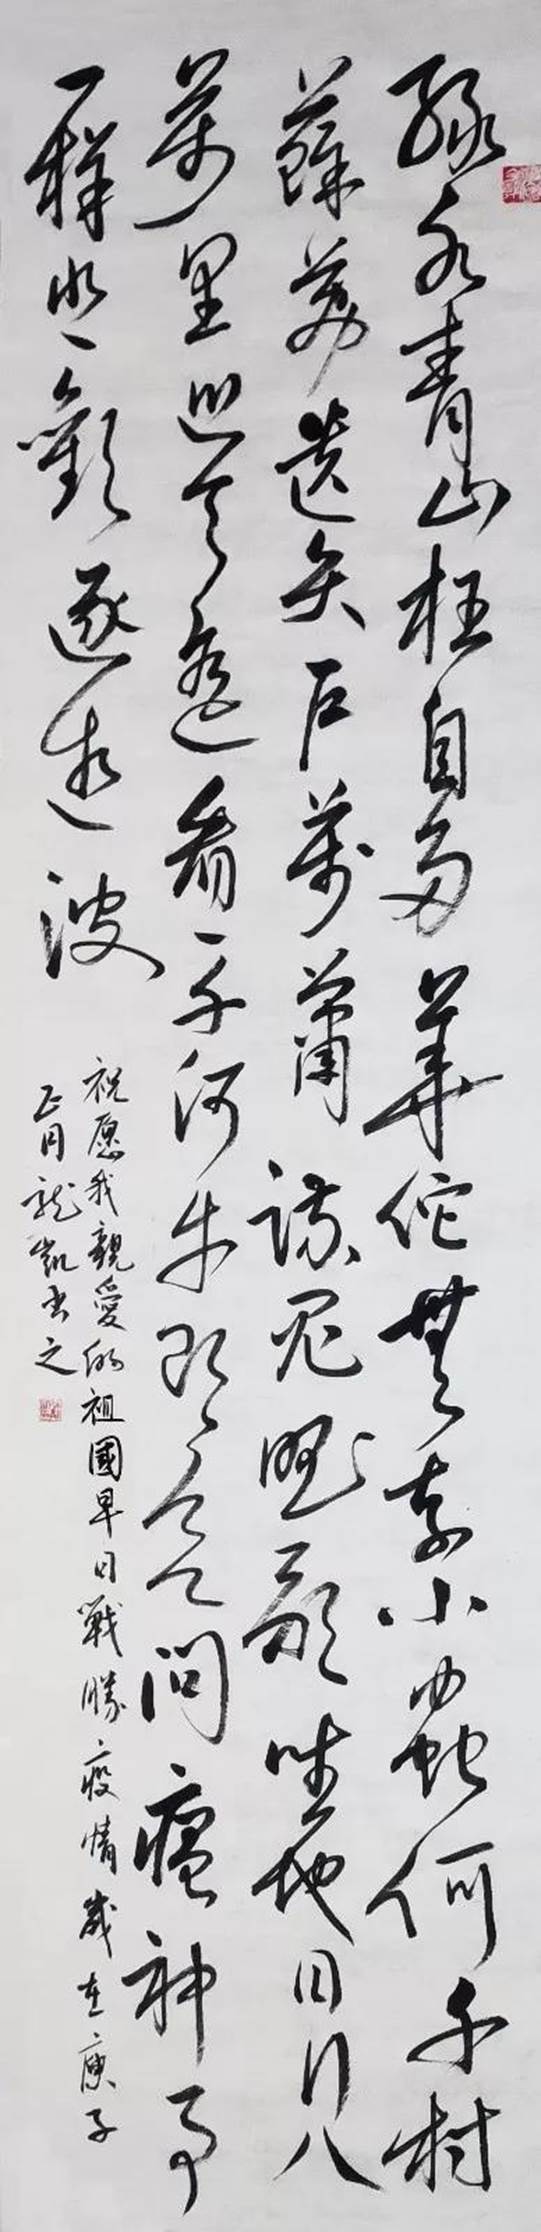 绿水青山枉自多華佗無奈小蟲何千村
薜荔遺矢户萬蕭疏鬼唱歌坐地日行八
萬里巡天遥看一千河牛郎欲問瘟神事
一樣悲歡逐逝波
祝愿我親愛的祖國早日戰勝疫情歲在庚子
正月龍凱書之